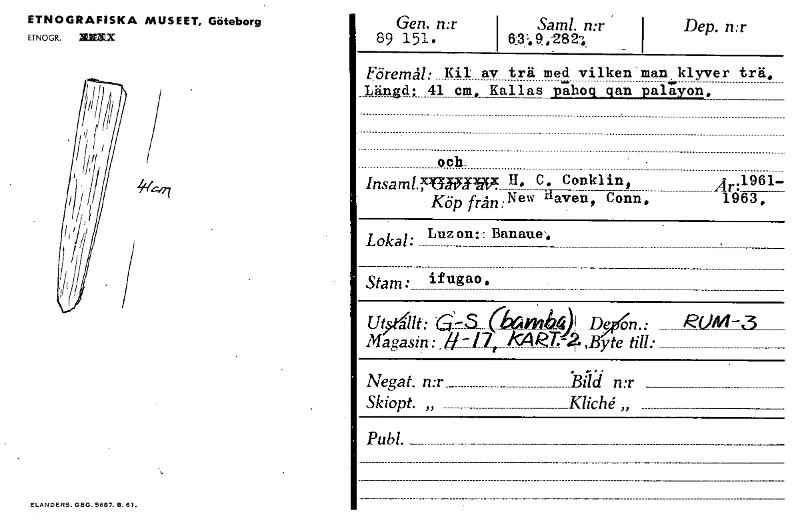 ETNOGRAFISKA MUSEET, Göteborg
ETNOGR.
41cm
ELANDERS. GBG. 5667. 8. 61.
Gen. n:r Saml. n:r Dep. n:r
89 151. 63.9.282.
Föremål: Kil av trä med vilken man klyver trä.
Längd: 41 cm. Kallas pāhoq qan palāyon.
och
Insaml., Gåva av H. C. Conklin, År: 1961-
Köp från: New Haven, Conn. 1963.
Lokal: Luzon: Banaue.
Stam: ifugao.
Utställt: G-S (bamba) Depon.: RUM-3
Magasin: H-17, KART.-2. Byte till:
Negat. n:r Bild n:r
Skiopt. „ Kliché „
Publ.